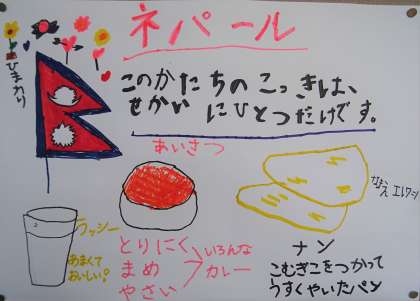 ネパール
ひまわり
このかたちのこっきは、
せかいにひとつだけです。
あいさつ
ラッシー
あまくて
おいしい!
とりにく
まめ
やさい
いろんな
カレー
ナン
こむぎこをつかって
うすくやいたパン